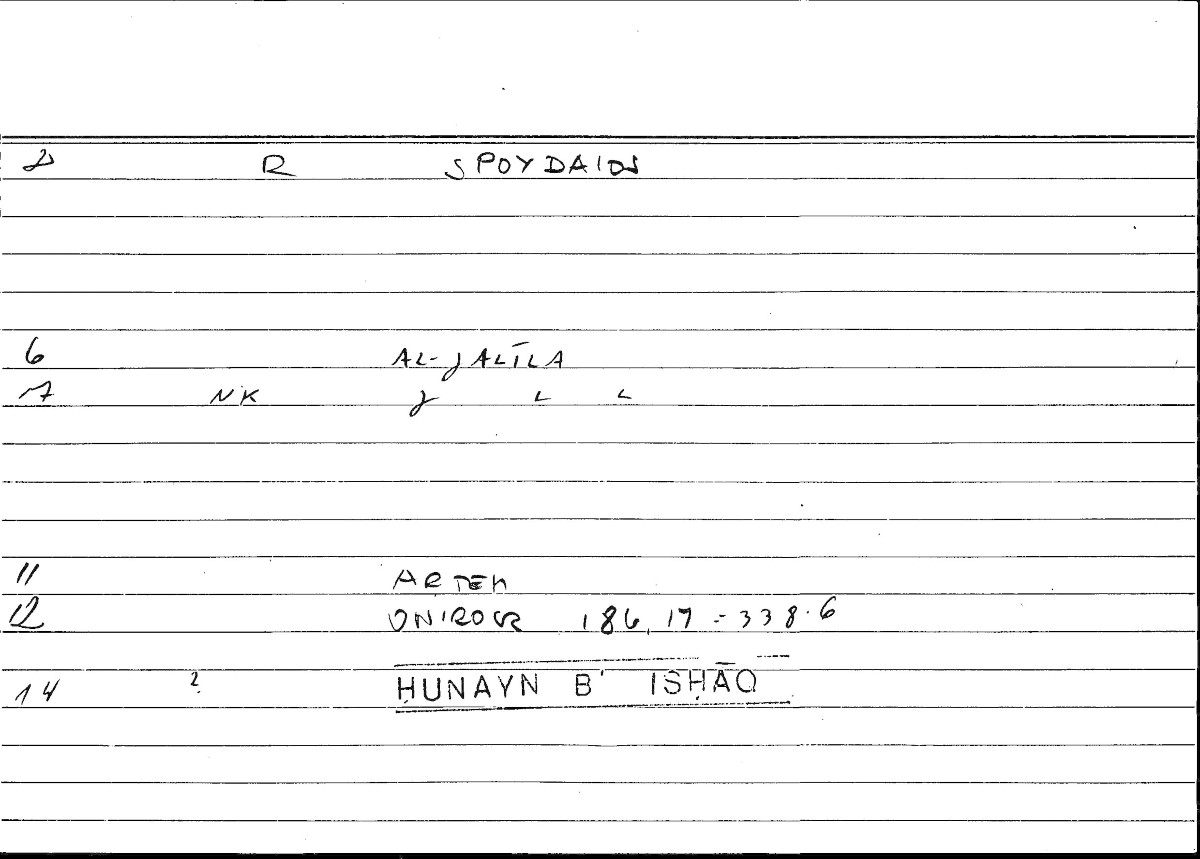 2 R SPOYDAIOS
6 AL-JALĪLA
7 NK J L L
11 ARTEM
12 ONIROCR 186,17 = 338.6
14 2 ḤUNAYN B' ISḤĀQ